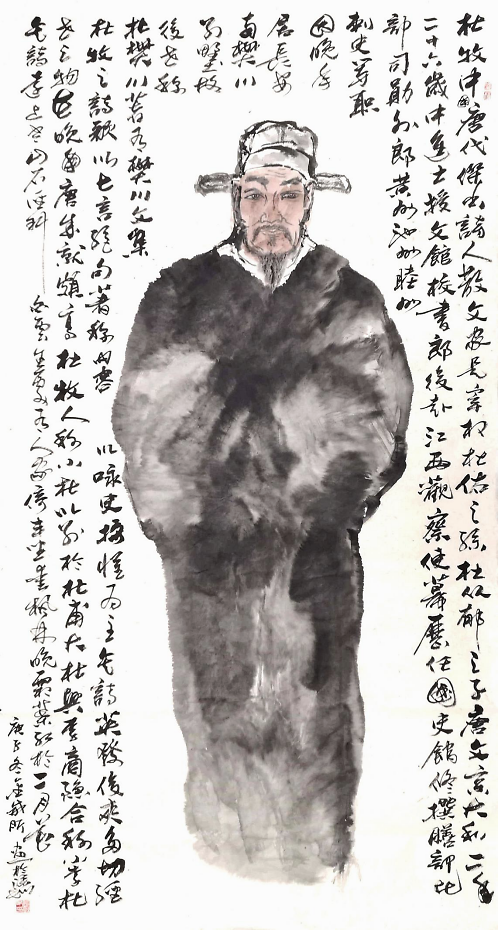 杜牧中國唐代傑出詩人散文家是宰相杜佑之孫杜從郁之子唐文宗大和二年
二十六歲中進士授文館校書郎後赴江西觀察使幕歷任國史館修撰膳部比
部司勳外郎黃州池州睦州
刺史等職
因晚年
居長安
南樊川
別墅故
後世称
杜樊川著有樊川文集
杜牧之詩歌以七言絕句著称内容以咏史抒懷为主其詩英發俊爽多切經
世之物在晚唐成就頗高杜牧人称小杜以別於杜甫大杜與李商隱合称小李杜
其詩遠上寒山石徑斜白雲生處有人家停車坐爱枫林晚霜葉红於二月花
庚子冬